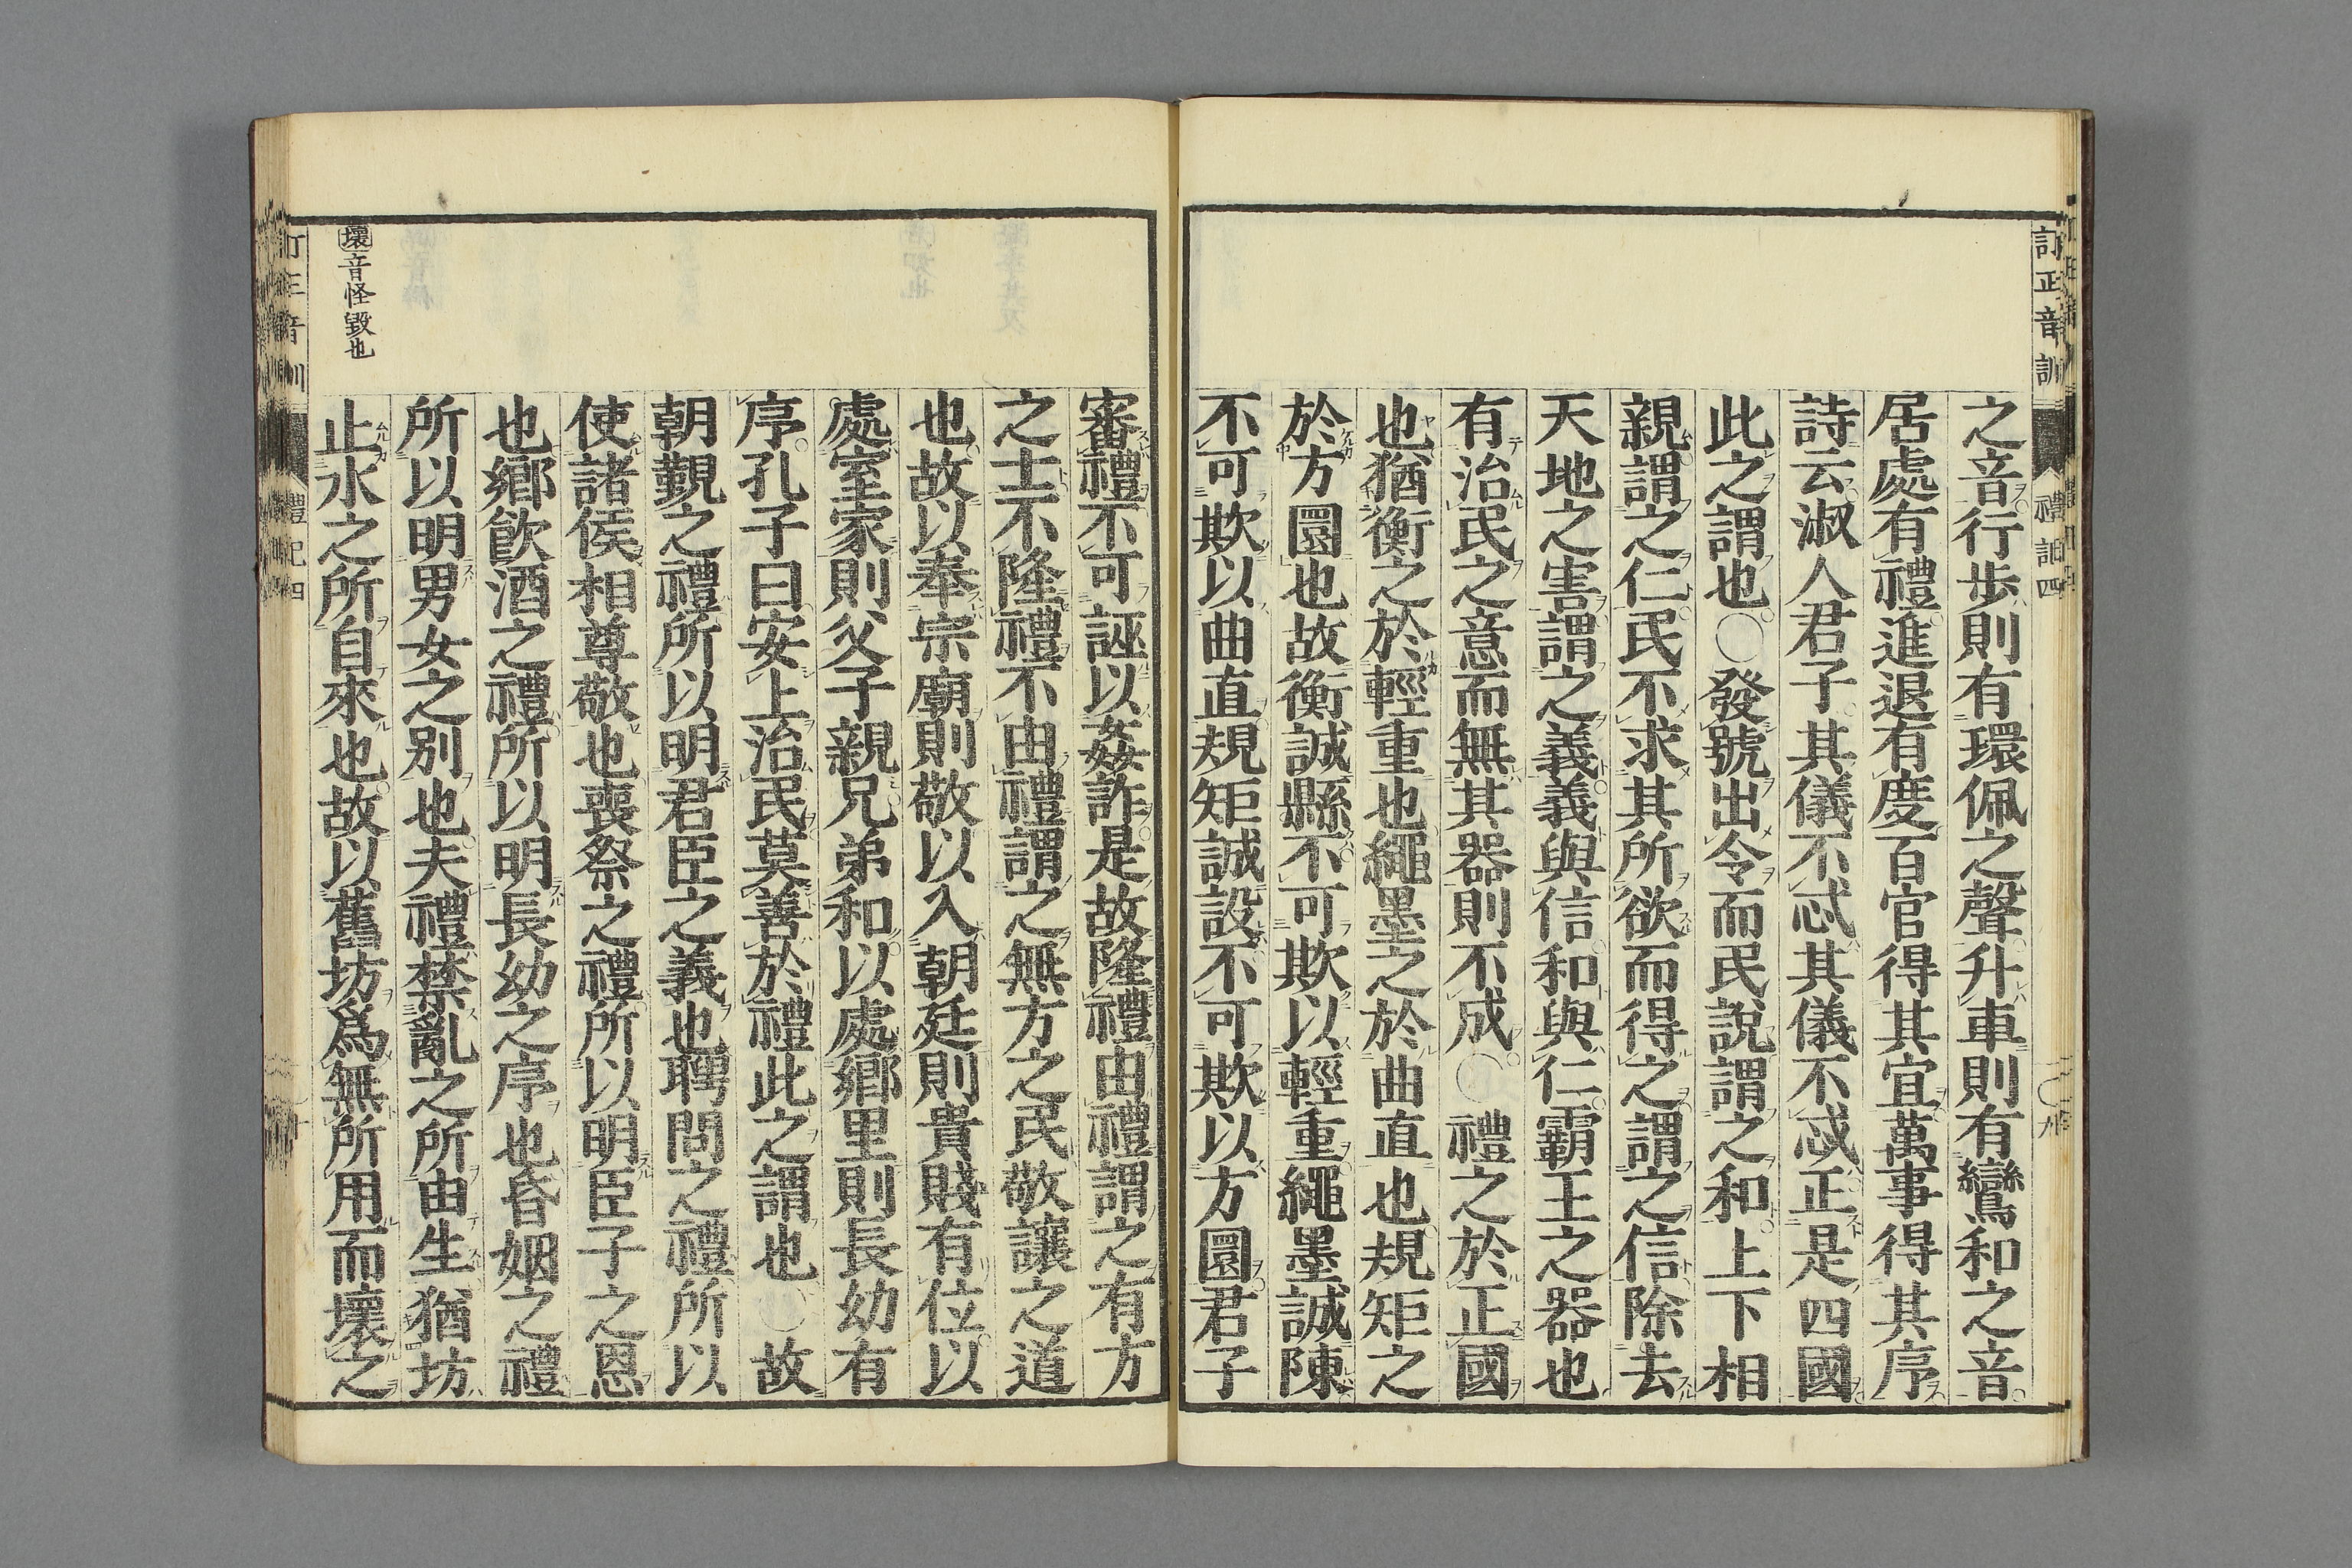 訂正音訓
禮記四
九
之音行歩則有環佩之聲升車則有鸞和之音
居處有禮進退有度百官得其宜萬事得其序
詩云淑人君子其儀不忒其儀不忒正是四國
此之謂也〇發號出令而民說謂之和上下相
親謂之仁民不求其所欲而得之謂之信除去
天地之害謂之義義與信和與仁霸王之器也
有治民之意而無其器則不成〇禮之於正國
也猶衡之於輕重也繩墨之於曲直也規矩之
於方圜也故衡誠縣不可欺以輕重繩墨誠陳
不可欺以曲直規矩誠設不可欺以方圜君子
審禮不可誣以姦詐是故隆禮由禮謂之有方
之士不隆禮不由禮謂之無方之民敬讓之道
也故以奉宗廟則敬以入朝廷則貴賤有位以
處室家則父子親兄弟和以處鄉里則長幼有
序孔子曰安上治民莫善於禮此之謂也〇故
朝覲之禮所以明君臣之義也聘問之禮所以
使諸侯相尊敬也喪祭之禮所以明臣子之恩
也鄉飲酒之禮所以明長幼之序也昏姻之禮
所以明男女之別也夫禮禁亂之所由生猶坊
止水之所自來也故以舊坊爲無所用而壞之
壞音怪毀也
訂正音訓
禮記四